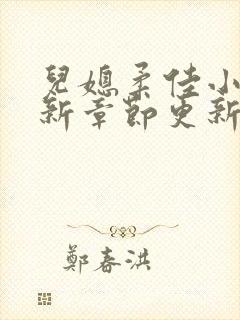 兒媳柔佳小
新章節更新
鄭春洪